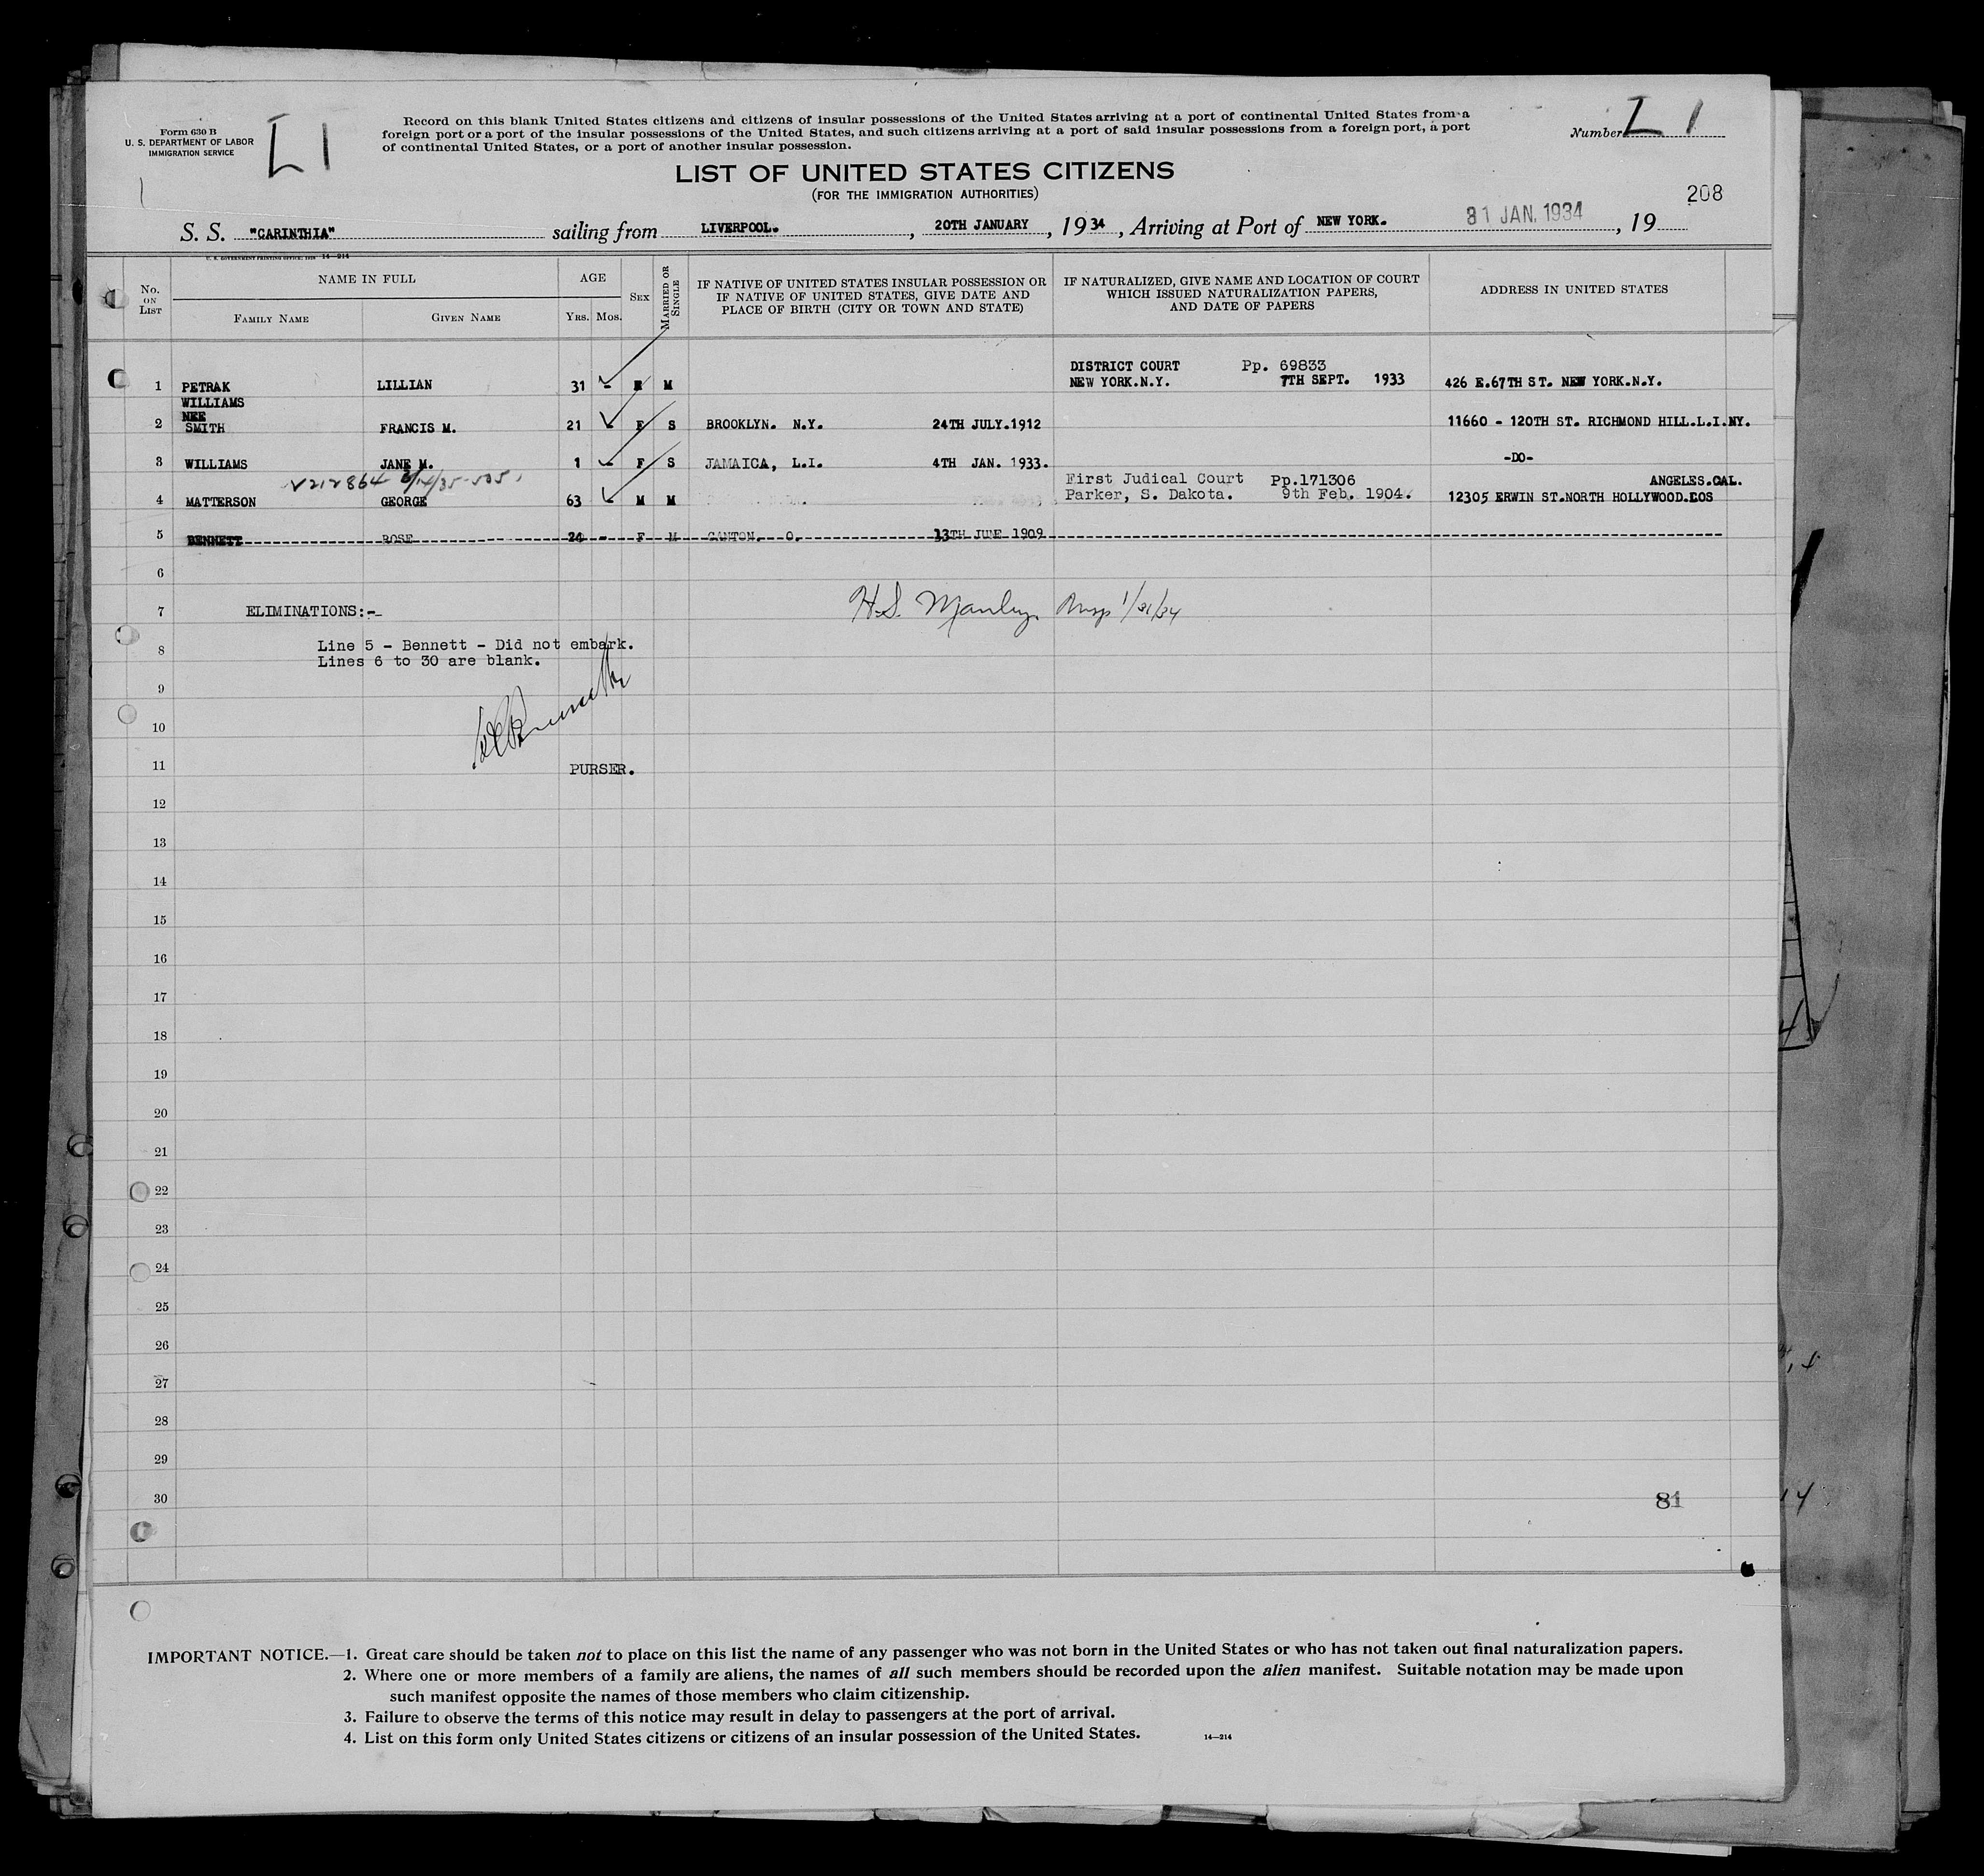 Form 630 B
U. S. DEPARTMENT OF LABOR
IMMIGRATION SERVICE
L 1
Record on this blank United States citizens and citizens of insular possessions of the United States arriving at a port of continental United States from a
foreign port or a port of the insular possessions of the United States, and such citizens arriving at a port of said insular possessions from a foreign port, a port
of continental United States, or a port of another insular possession.
Number L 1
LIST OF UNITED STATES CITIZENS
(FOR THE IMMIGRATION AUTHORITIES)
208
S. S. "CARINTHIA" sailing from LIVERPOOL. , 20TH JANUARY , 1934 , Arriving at Port of NEW YORK. 31 JAN. 1934 , 19
U. S. GOVERNMENT PRINTING OFFICE: 1928 14—214
No. ON LIST
NAME IN FULL
FAMILY NAME
GIVEN NAME
AGE
YRS. MOS.
SEX
MARRIED OR SINGLE
IF NATIVE OF UNITED STATES INSULAR POSSESSION OR
IF NATIVE OF UNITED STATES, GIVE DATE AND
PLACE OF BIRTH (CITY OR TOWN AND STATE)
IF NATURALIZED, GIVE NAME AND LOCATION OF COURT
WHICH ISSUED NATURALIZATION PAPERS,
AND DATE OF PAPERS
ADDRESS IN UNITED STATES
DISTRICT COURT Pp. 69833
1 PETRAK LILLIAN 31 - F M NEW YORK.N.Y. 7TH SEPT. 1933 426 E.67TH ST. NEW YORK.N.Y.
WILLIAMS
NEE
2 SMITH FRANCIS M. 21 - F S BROOKLYN. N.Y. 24TH JULY.1912 11660 - 120TH ST. RICHMOND HILL.L.I.NY.
3 WILLIAMS JANE M. 1 - F S JAMAICA, L.I. 4TH JAN. 1933. -DO-
V212864 3/14/35-505
First Judical Court Pp.171306 ANGELES.CAL.
4 MATTERSON GEORGE 63 - M M Parker, S. Dakota. 9th Feb. 1904. 12305 ERWIN ST.NORTH HOLLYWOOD.LOS
5 BENNETT ROSE 24 - F M CANTON. O. 13TH JUNE 1909
6
7 ELIMINATIONS:-
H.S. Manley 1/31/34
8 Line 5 - Bennett - Did not embark.
Lines 6 to 30 are blank.
9
10
11 PURSER.
12
13
14
15
16
17
18
19
20
21
22
23
24
25
26
27
28
29
30
81
IMPORTANT NOTICE.—1. Great care should be taken not to place on this list the name of any passenger who was not born in the United States or who has not taken out final naturalization papers.
2. Where one or more members of a family are aliens, the names of all such members should be recorded upon the alien manifest. Suitable notation may be made upon
such manifest opposite the names of those members who claim citizenship.
3. Failure to observe the terms of this notice may result in delay to passengers at the port of arrival.
4. List on this form only United States citizens or citizens of an insular possession of the United States. 14—214